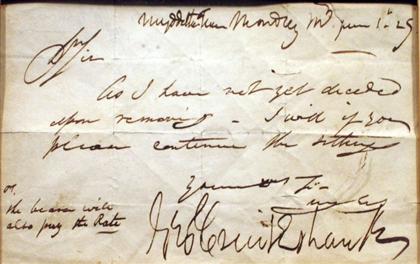 Myddelton Monday Mg June 1. 29
Dr Sir
As I have not yet decided
upon removing - I will if you
please continue the sittings
Yours
Geo Cruikshank
or,
the bearer will
also pay the Rate